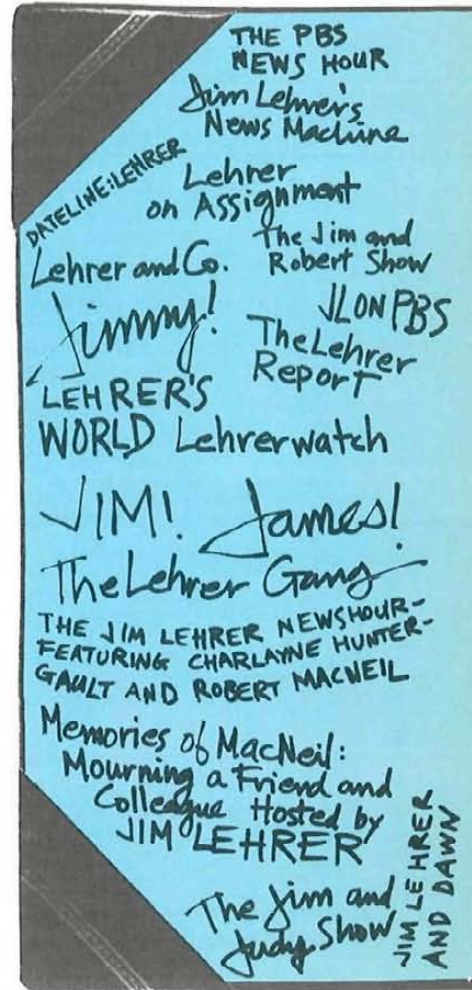 THE PBS
NEWS HOUR
Jim Lehrer's
News Machine
DATELINE: LEHRER
Lehrer
on Assignment
The Jim and
Robert Show
Lehrer and Co.
Jimmy!
JL ON PBS
The Lehrer
Report
LEHRER'S
WORLD
Lehrerwatch
JIM!
James!
The Lehrer Gang
THE JIM LEHRER NEWSHOUR-
FEATURING CHARLAYNE HUNTER-
GAULT AND ROBERT MACNEIL
Memories of MacNeil:
Mourning a Friend and
Colleague Hosted by
JIM LEHRER
The Jim and
Judy Show
JIM LEHRER
AND DAWN